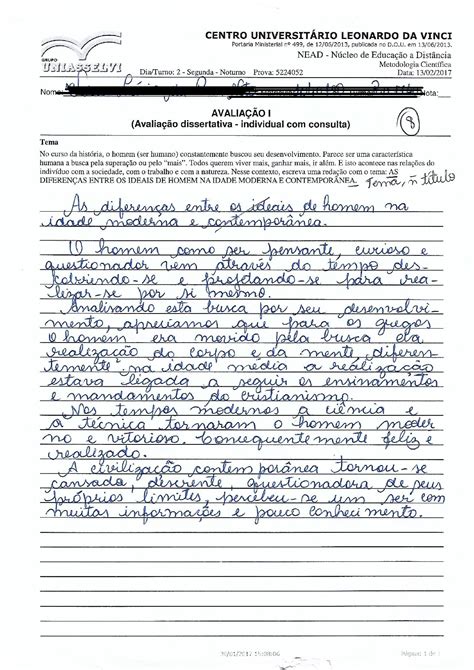 CENTRO UNIVERSITÁRIO LEONARDO DA VINCI
Portaria Ministerial nº 499, de 12/06/2013, publicada no D.O.U. em 13/06/2013.
NEAD - Núcleo de Educação a Distância
GRUPO
UNIASSELVI
Metodologia Científica
Dia/Turno: 2 - Segunda - Noturno Prova: 5224052 Data: 13/02/2017
Nota:
AVALIAÇÃO I
(Avaliação dissertativa - individual com consulta)
8
Tema
No curso da história, o homem (ser humano) constantemente buscou seu desenvolvimento. Parece ser uma característica
humana a busca pela superação ou pelo "mais". Todos querem viver mais, ganhar mais, ir além. E isto acontece nas relações do
indivíduo com a sociedade, com o trabalho e com a natureza. Nesse contexto, escreva uma redação com o tema: AS
DIFERENÇAS ENTRE OS IDEAIS DE HOMEM NA IDADE MODERNA E CONTEMPORÂNEA.
Tema, ñ título
As diferenças entre os ideais de homem na
idade moderna e contemporânea.
O homem como ser pensante, curioso e
questionador vem através do tempo des-
cobrindo-se e para rea-
lizar-se por si mesmo.
Analisando esta busca por seu desenvolvi-
mento, apreciamos que para os gregos
O homem era movido pela busca da
realização do corpo e da mente, diferen
temente na idade média a realização
estava ligada a seguir os ensinamentos
e mandamentos do cristianismo.
Nos tempos modernos a ciência e
a técnica tornaram o homem moder
no e vitorioso. Consequentemente feliz e
realizado.
A civilização contemporânea tornou-se
cansada, descrente, questionadora de seus
próprios limites, percebeu-se um ser com
muitas informações e pouco conhecimento.
Página: 1 de 1